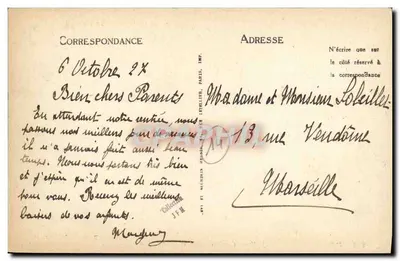 CORRESPONDANCE
ADRESSE
N'écrire que sur
le côté réservé à
la correspondance
6 Octobre 27
Bien chers Parents
En attendant notre entrée, nous
passons nos meilleurs jours de vacances
il n'a jamais fait aussi beau
temps. Nous nous portons très bien
et j'espère qu'il en est de même
pour vous. Recevez les meilleurs
baisers de vos enfants.
Madame et Monsieur
13, rue Vendôme
Marseille